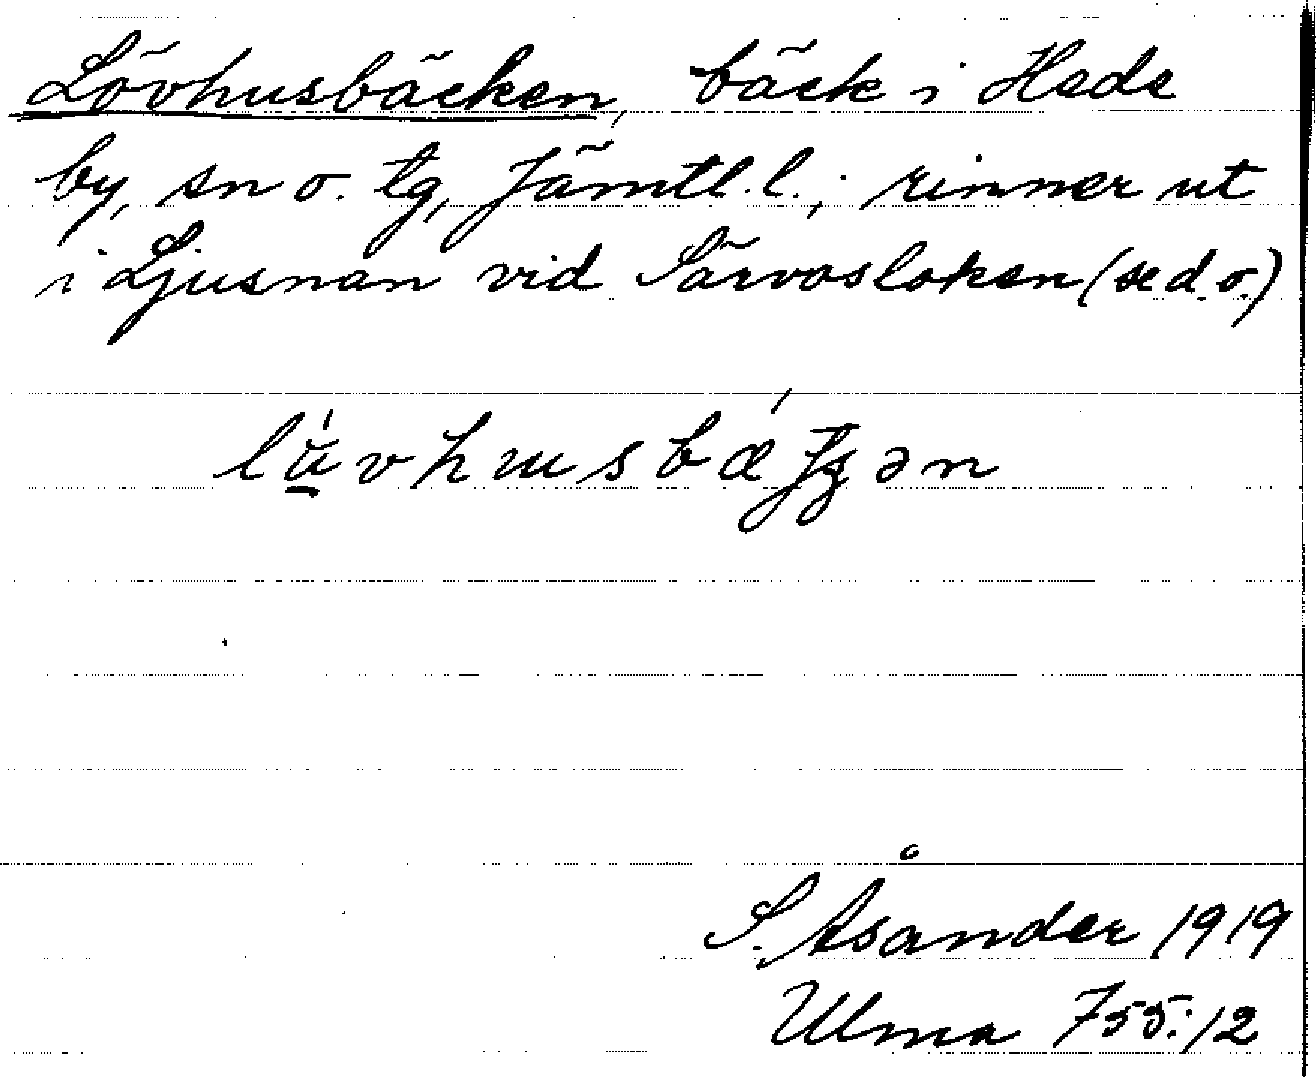 Lövhusbäcken, bäck i Hede
by, sn o. tg, Jämtl. l.; rinner ut
i Ljusnan vid Särvasloken (se d. o.)
S. Åsander 1919
Ulma 755:12